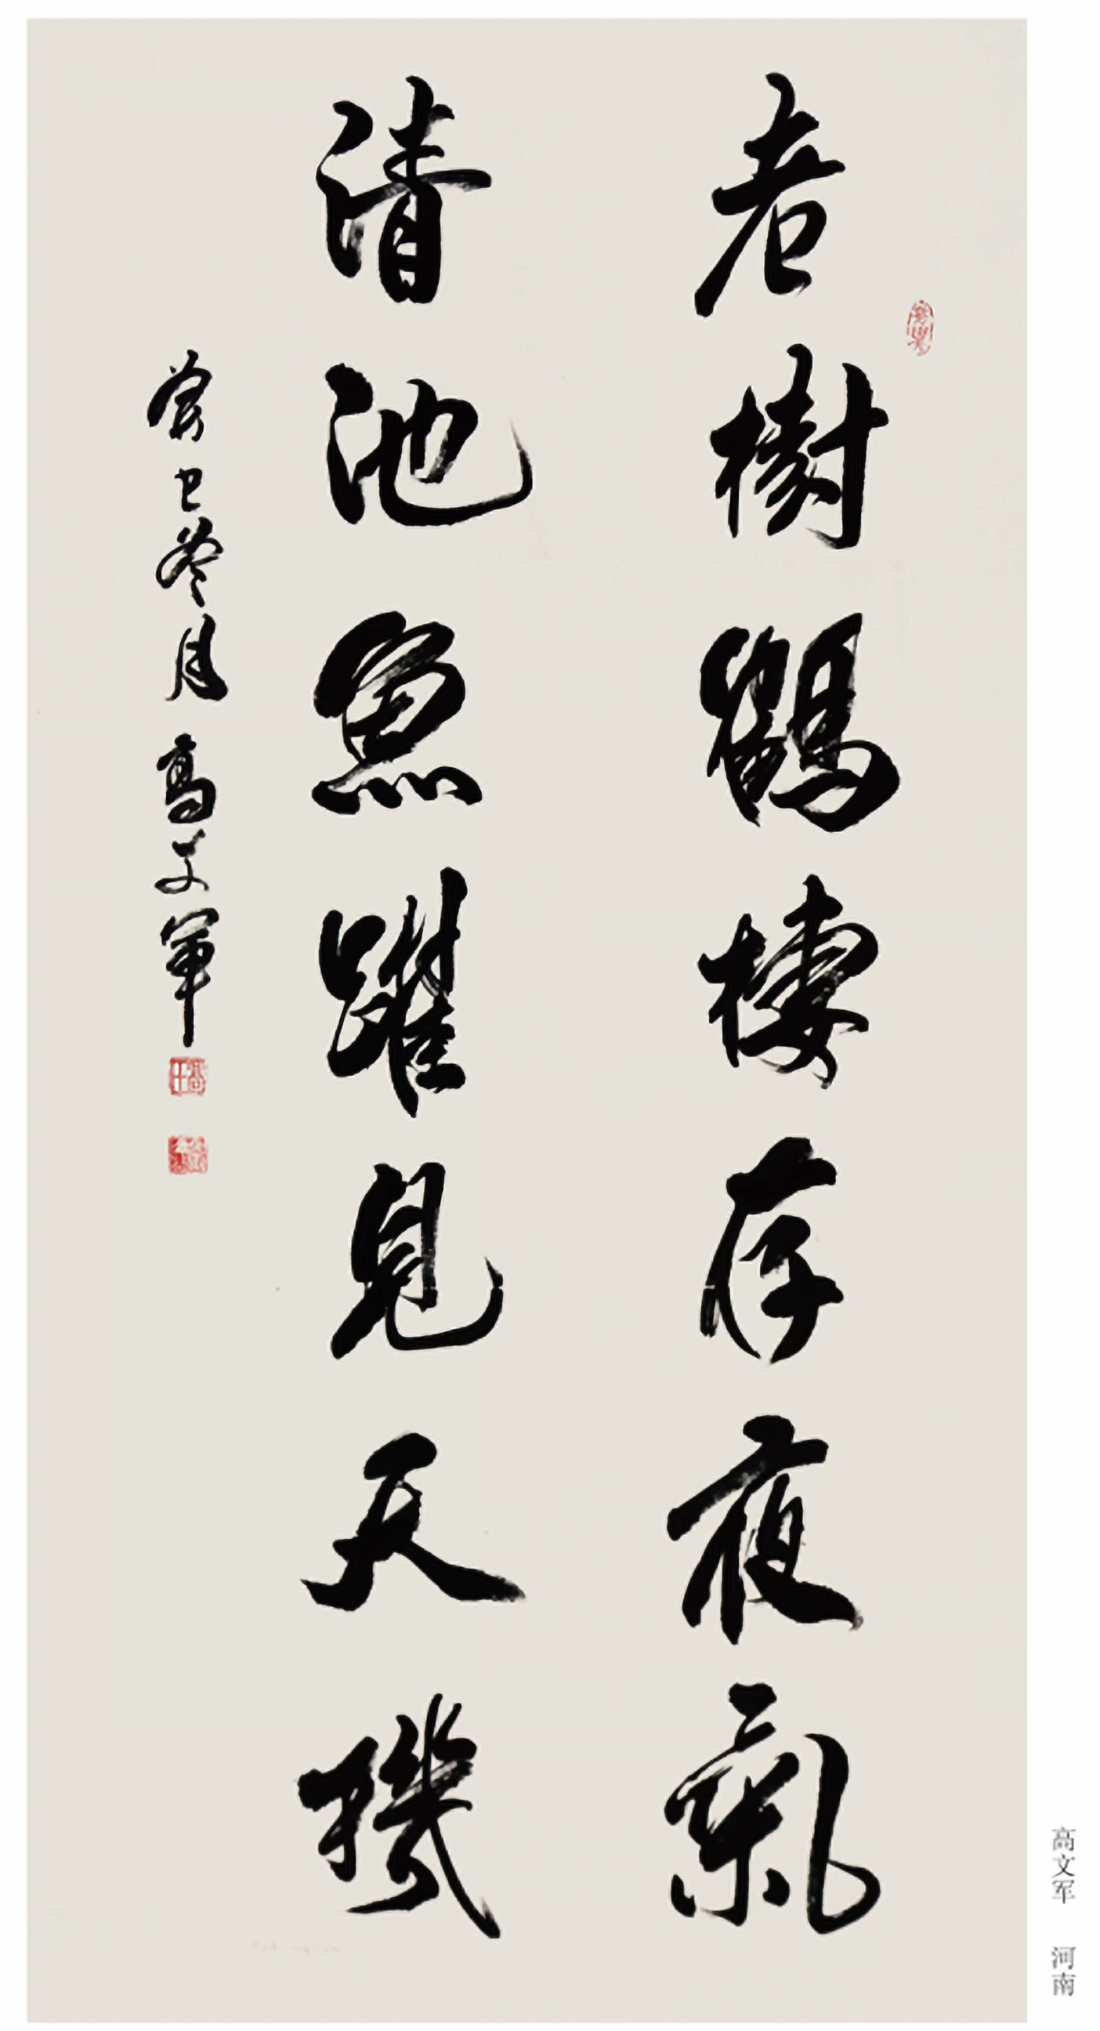 老樹鶴棲存夜氣
清池魚躍見天機
癸巳冬月高文軍
高文军 河南